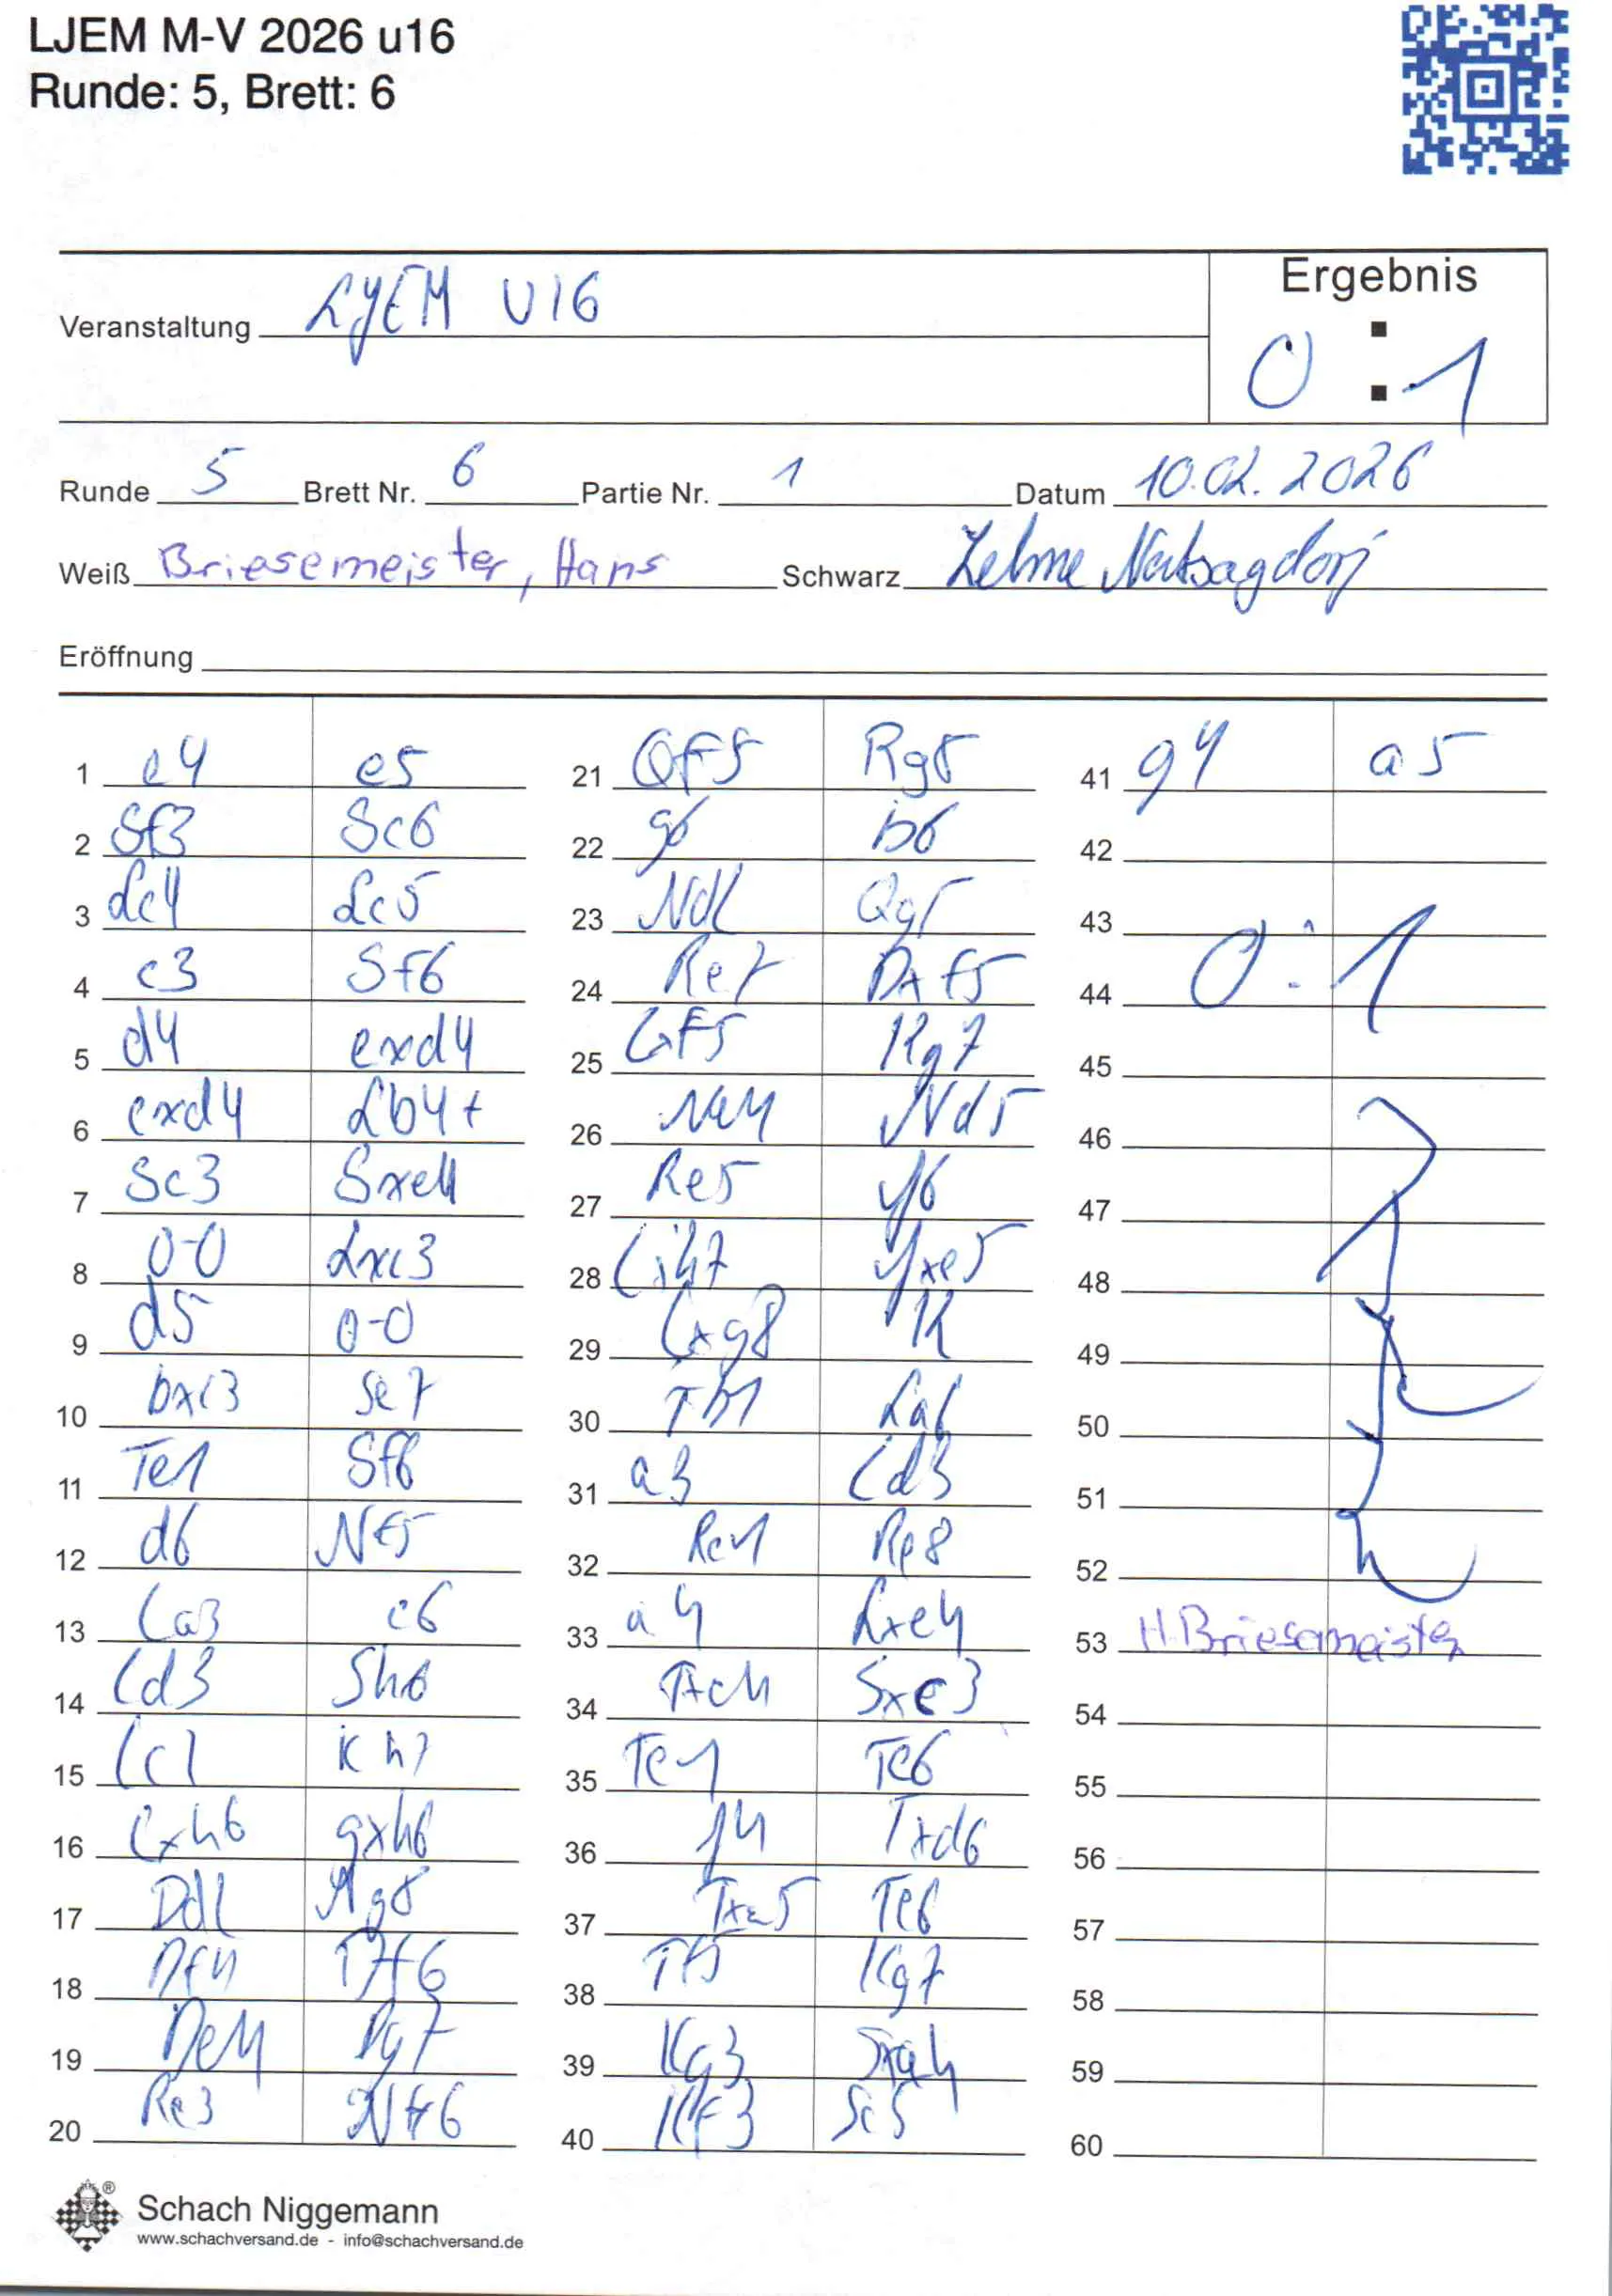 LJEM M-V 2026 u16
Runde: 5, Brett: 6
Ergebnis
Veranstaltung LJEM U16
0 : 1
Runde 5 Brett Nr. 6 Partie Nr. 1 Datum 10.02.2026
Weiß Briesemeister, Hans Schwarz Zelme Natsagdorj
Eröffnung
1 e4 e5
2 Sf3 Sc6
3 Lc4 Lc5
4 c3 Sf6
5 d4 exd4
6 cxd4 Lb4+
7 Sc3 Sxe4
8 0-0 Lxc3
9 d5 0-0
10 bxc3 Se7
11 Te1 Sf6
12 d6 Nf5
13 La3 c6
14 Ld3 Sh6
15 Lc1 Kh7
16 Lxh6 gxh6
17 Dd2 Rg8
18 Df4 Df6
19 De4 Dg7
20 Re3 Nf6
21 Qf5 Rg5
22 g6 b6
23 Nd2 Qg5
24 Re7 Dxf5
25 Lf5 Kg7
26 Ne4 Nd5
27 Re5 f6
28 Lh7 fxe5
29 Lxg8 K
30 Tb1 La6
31 a3 Ld3
32 Re1 Re8
33 a4 Lxe4
34 Txe4 Sxc3
35 Te1 Te6
36 f4 Txd6
37 Txe5 Te6
38 Tf5 Kg7
39 Kg3 Sxa4
40 Kf3 Sc5
41 g4 a5
42
43
44
0 : 1
45
46
47
48
49
50
51
52
53 H. Briesemeister
54
55
56
57
58
59
60
Schach Niggemann
www.schachversand.de - info@schachversand.de